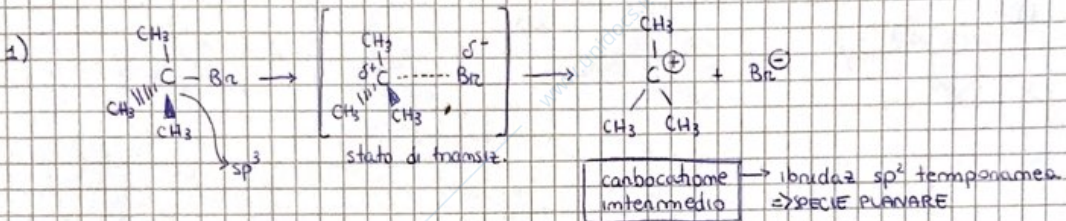 1)
CH3
C – Br → 
CH3 CH3
sp³
[ CH3
δ+ C ------- Br δ-
CH3 CH3 ]
stato di transiz.
→
CH3
C ⊕ + Br ⊖
CH3 CH3
carbocatione → ibridaz sp² temporanea
intermedio ⇒ SPECIE PLANARE